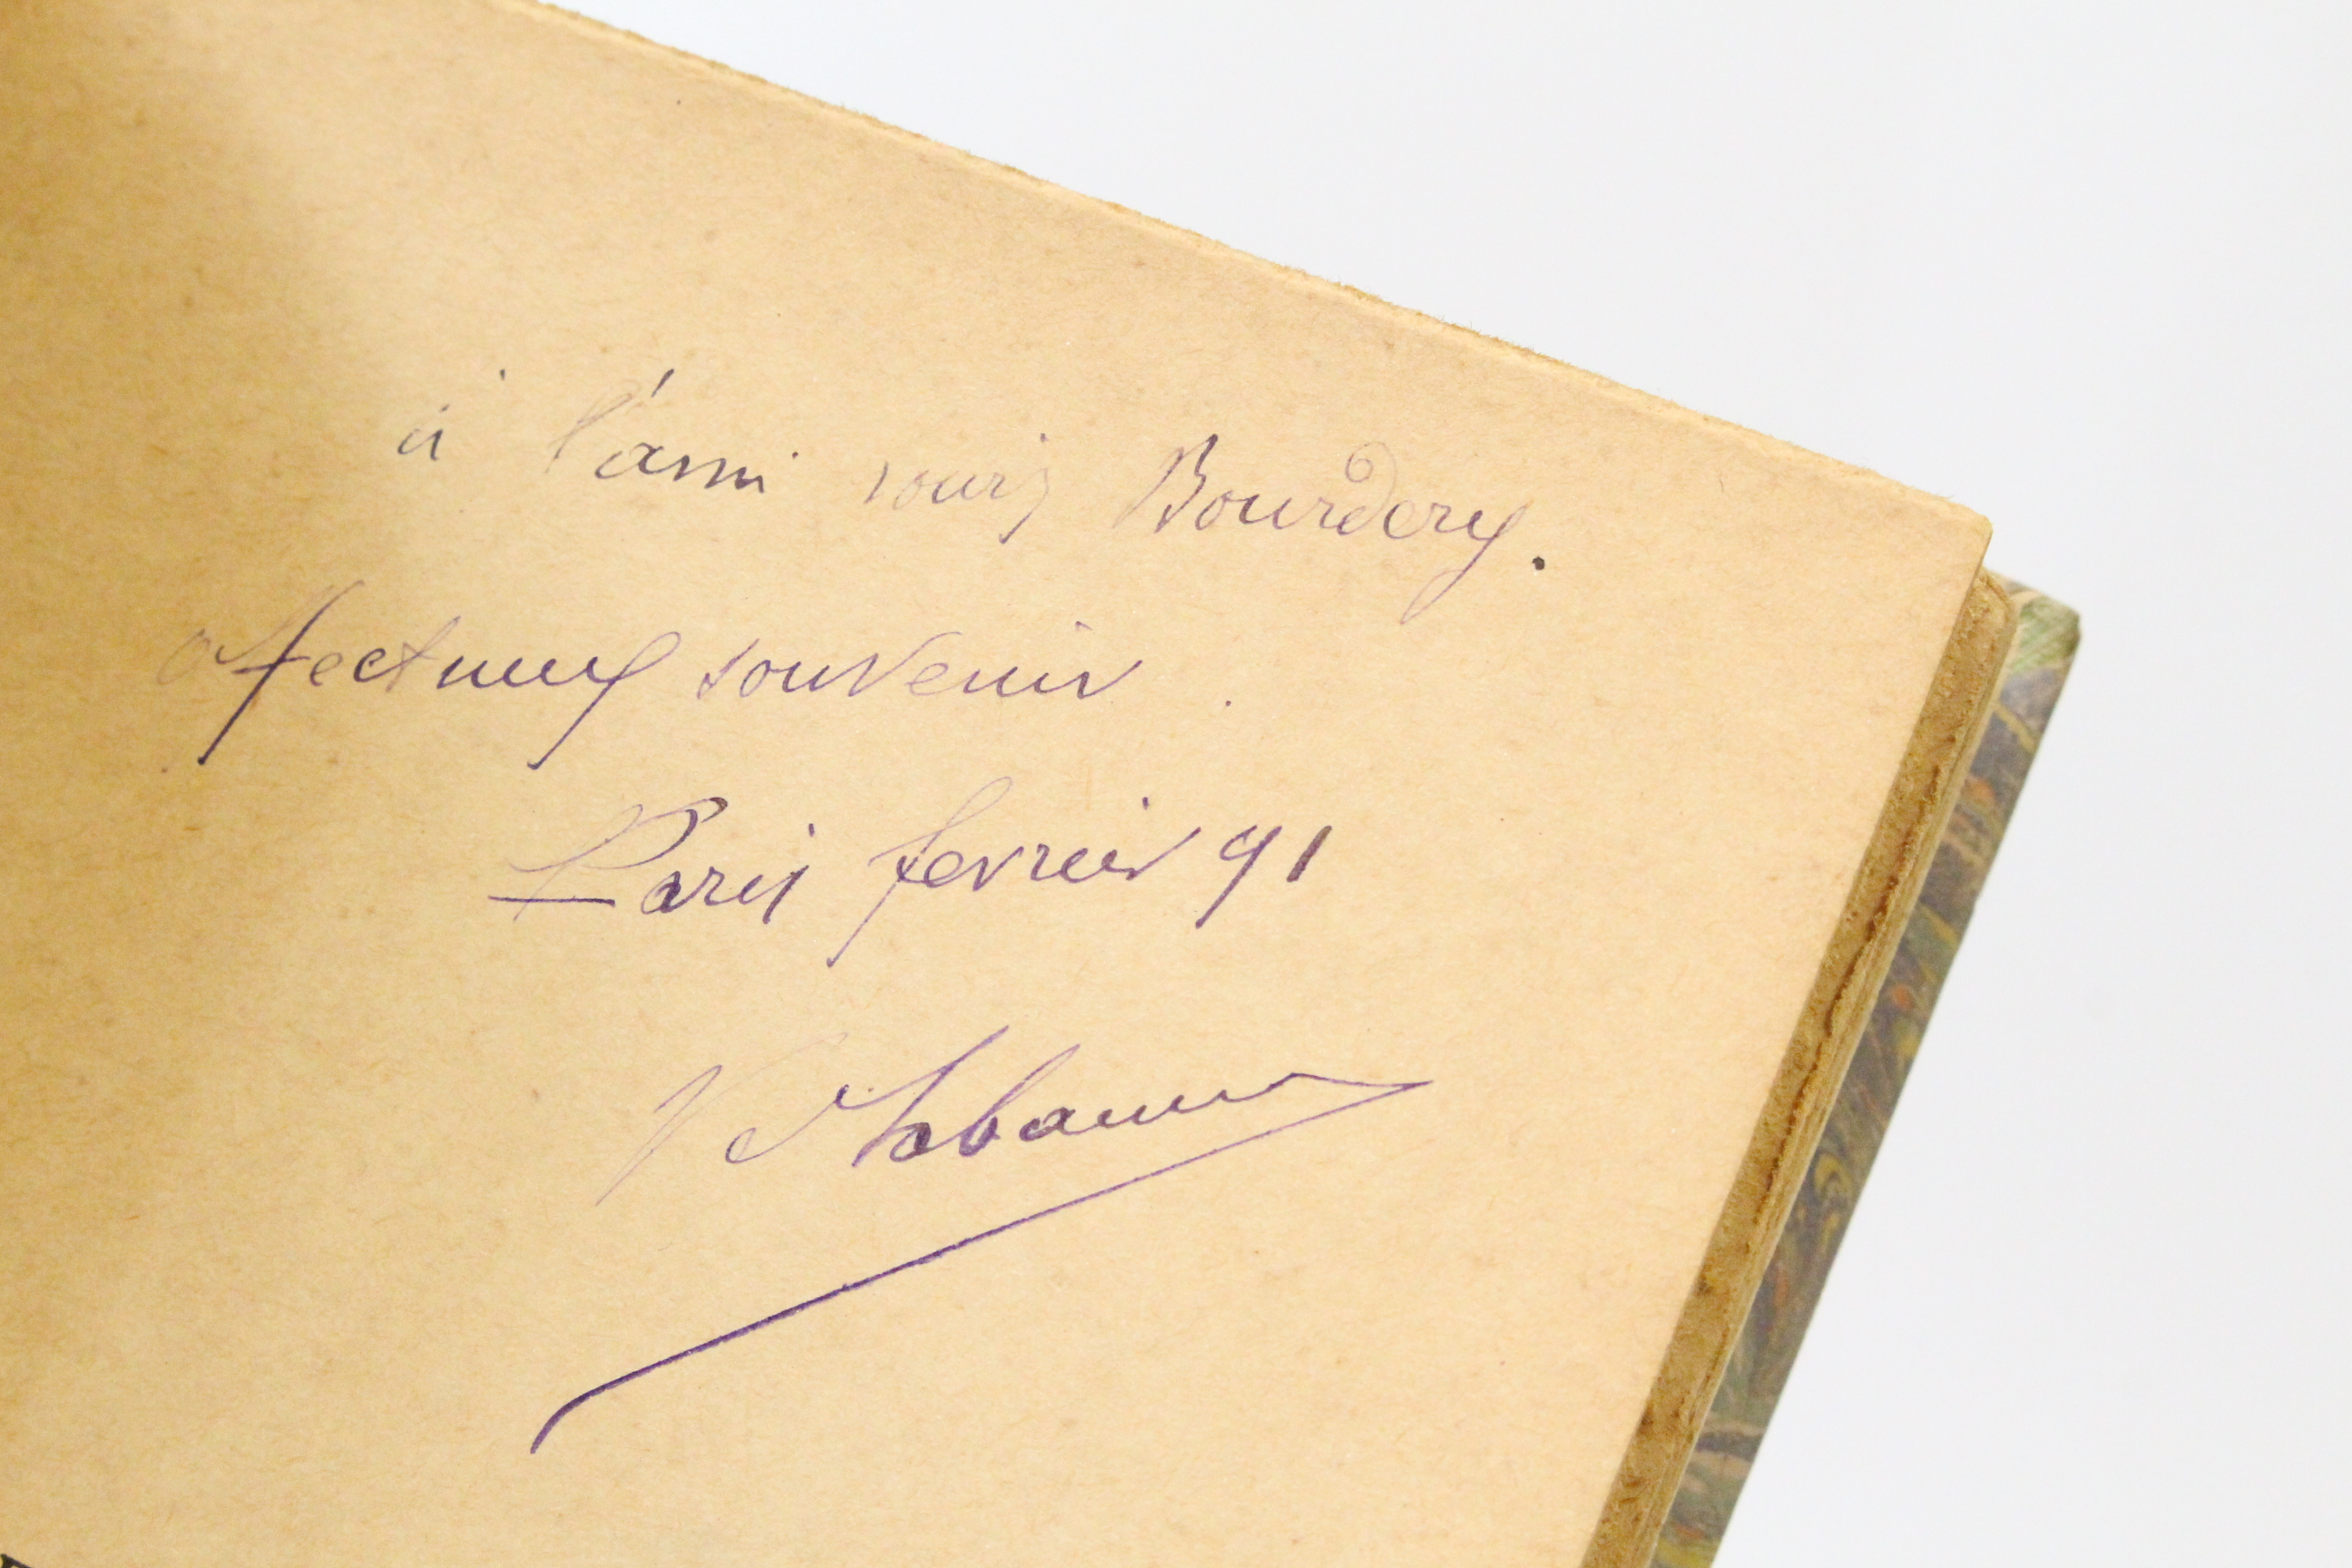 à l'ami Louis Bourdery.
affectueux souvenir.
Paris fevrier 91